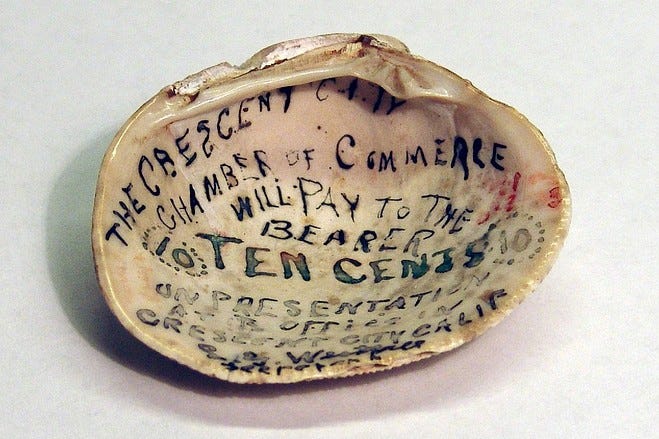 THE CRESCENT CITY
CHAMBER OF COMMERCE
WILL PAY TO THE
BEARER
10 TEN CENTS 10
ON PRESENTATION
AT OFFICE IN
CRESCENT CITY CALIF